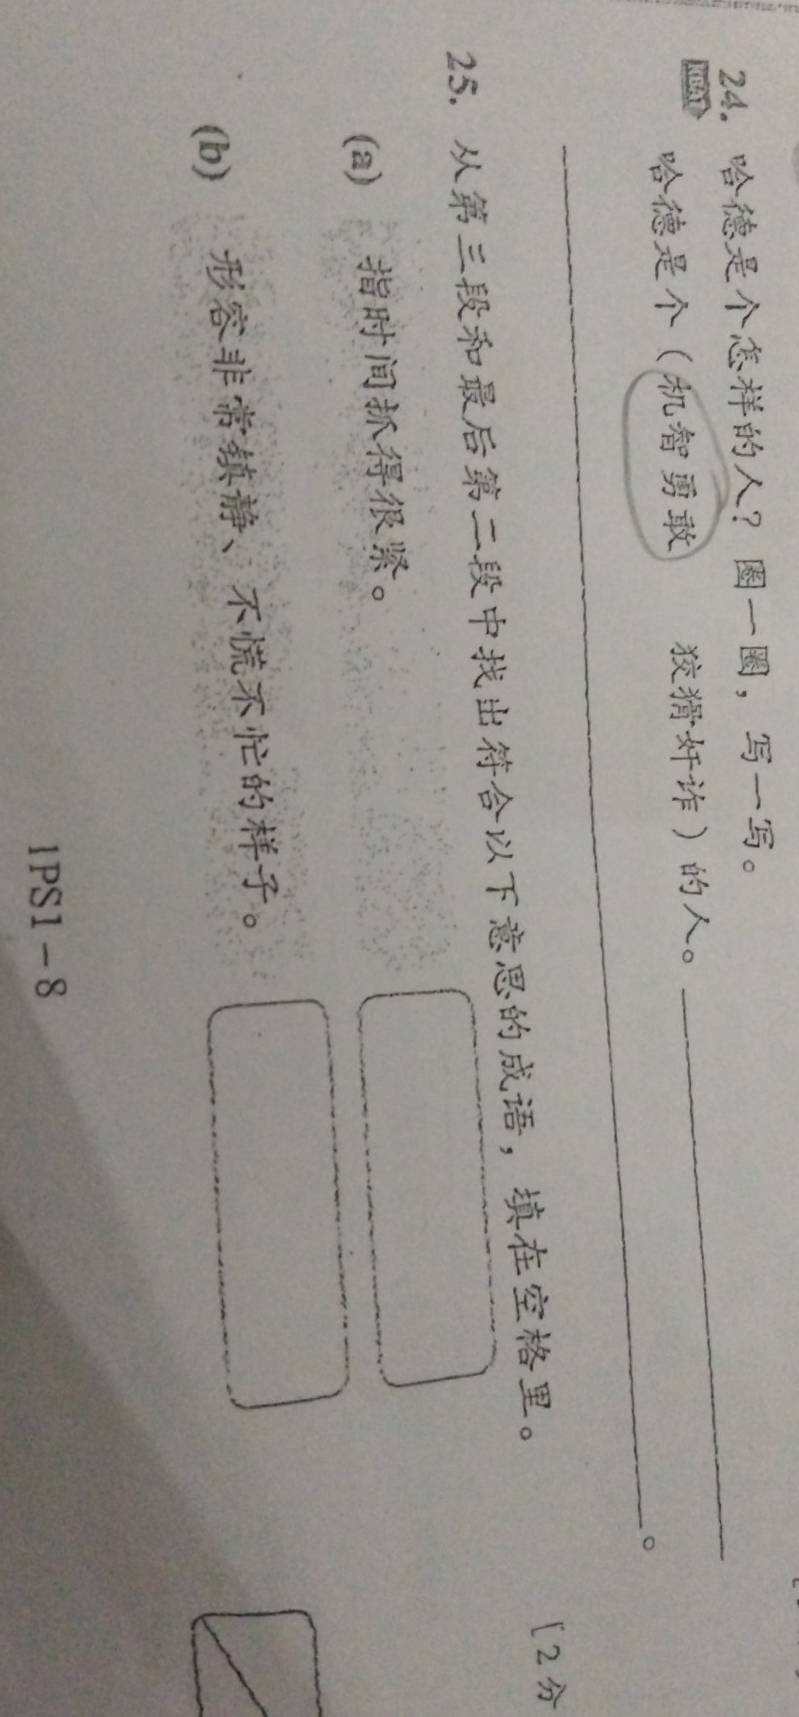 24. 哈德是个怎样的人？圈一圈，写一写。
KBAT 哈德是个（机智勇敢 狡猾奸诈）的人。
。
25. 从第三段和最后第二段中找出符合以下意思的成语，填在空格里。
[2分
(a) 指时间抓得很紧。
(b) 形容非常镇静、不慌不忙的样子。
1PS1-8